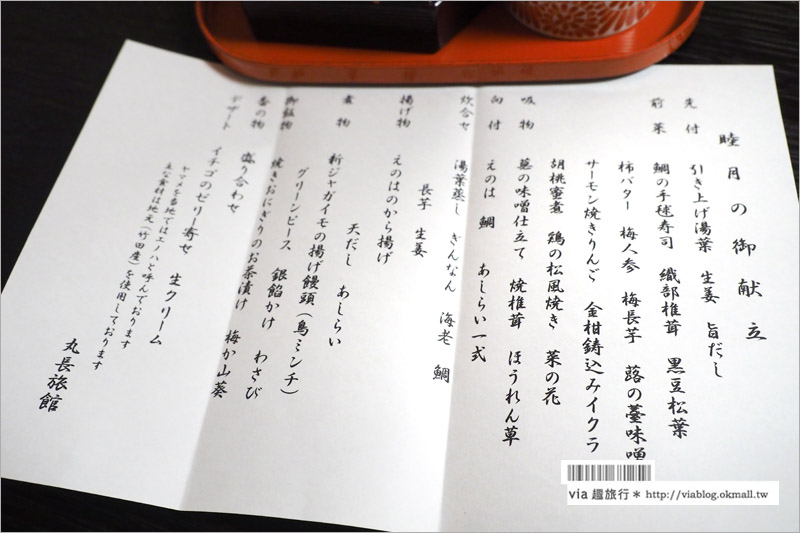 睦月の御献立
先付 引き上げ湯葉 生姜 旨だし
前菜 鯛の手毬寿司 織部椎茸 黒豆松葉
柿バター 梅人参 梅長芋 蕗の薹味噌
サーモン焼きりんご 金柑鋳込みイクラ
胡桃蜜煮 鶏の松風焼き 菜の花
吸物 蕪の味噌仕立て 焼椎茸 ほうれん草
向付 えのは 鯛 あしらい一式
炊合せ 湯葉蒸し ぎんなん 海老 鯛
長芋 生姜
揚げ物 えのはのから揚げ
天だし あしらい
煮物 新ジャガイモの揚げ饅頭(鳥ミンチ)
グリーンピース 銀餡かけ わさび
御飯物 焼きおにぎりのお茶漬け 梅か山葵
香の物 盛り合わせ
デザート イチゴのゼリー寄せ 生クリーム
ヤマメを当地ではエノハと呼んでおります
主な食材は地元(竹田産)を使用しております
丸長旅館
via 趣旅行＊ http://viablog.okmall.tw